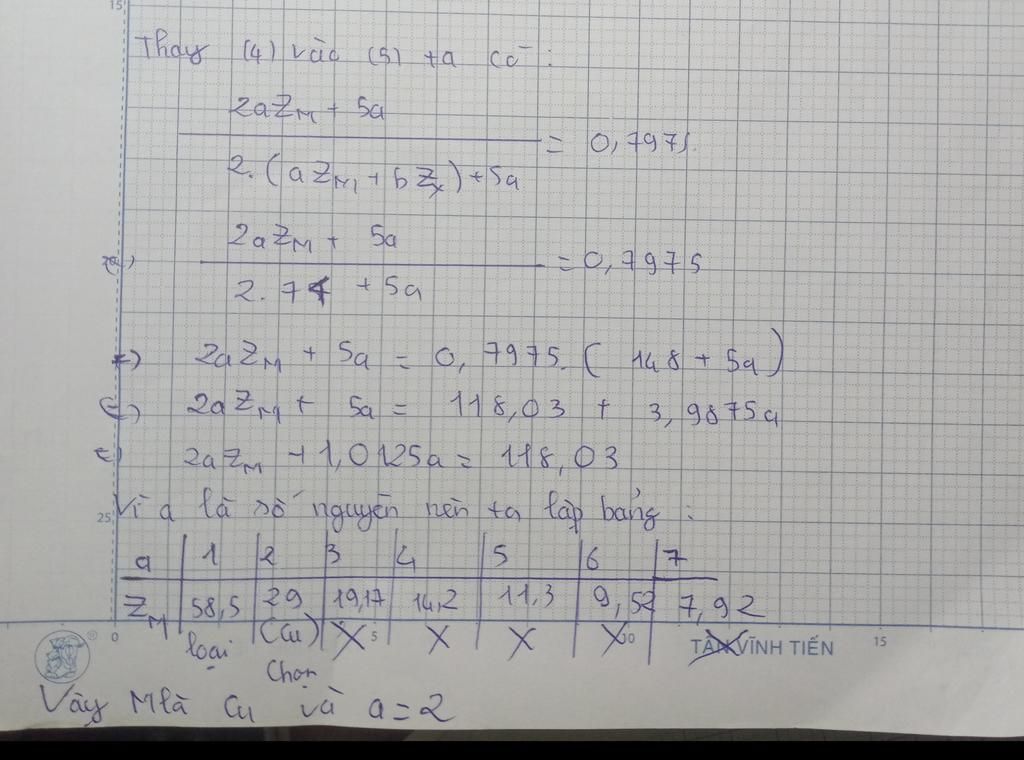 15
Thay (4) vào (5) ta có:
2aZM + 5a
= 0,7975
2.(aZM + bZX) + 5a
2aZM + 5a
= 0,7975
2.74 + 5a
2aZM + 5a = 0,7975.(148 + 5a)
2aZM + 5a = 118,03 + 3,9875a
2aZM + 1,0125a = 118,03
Vì a là số nguyên nên ta lập bảng:
25
a 1 2 3 4 5 6 7
ZM 58,5 29 19,17 14,2 11,3 9,52 7,92
loại (Cu) X X X X
Chọn
0 5 10 TÂN VĨNH TIẾN 15
Vậy M là Cu và a = 2